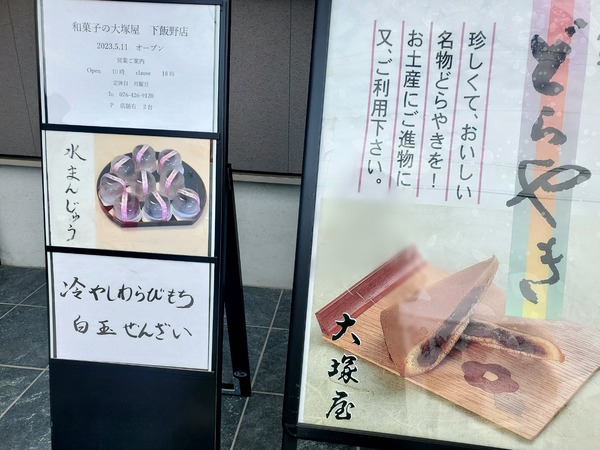 和菓子の大塚屋 下飯野店
2023.5.11 オープン
営業ご案内
Open 10時 clause 18時
定休日 月曜日
℡ 076-426-9120
P 店舗右 2台
水まんじゅう
冷やしわらびもち
白玉ぜんざい
どらやき
珍しくて、おいしい
名物どらやきを!
お土産にご進物に
又、ご利用下さい。
大塚屋